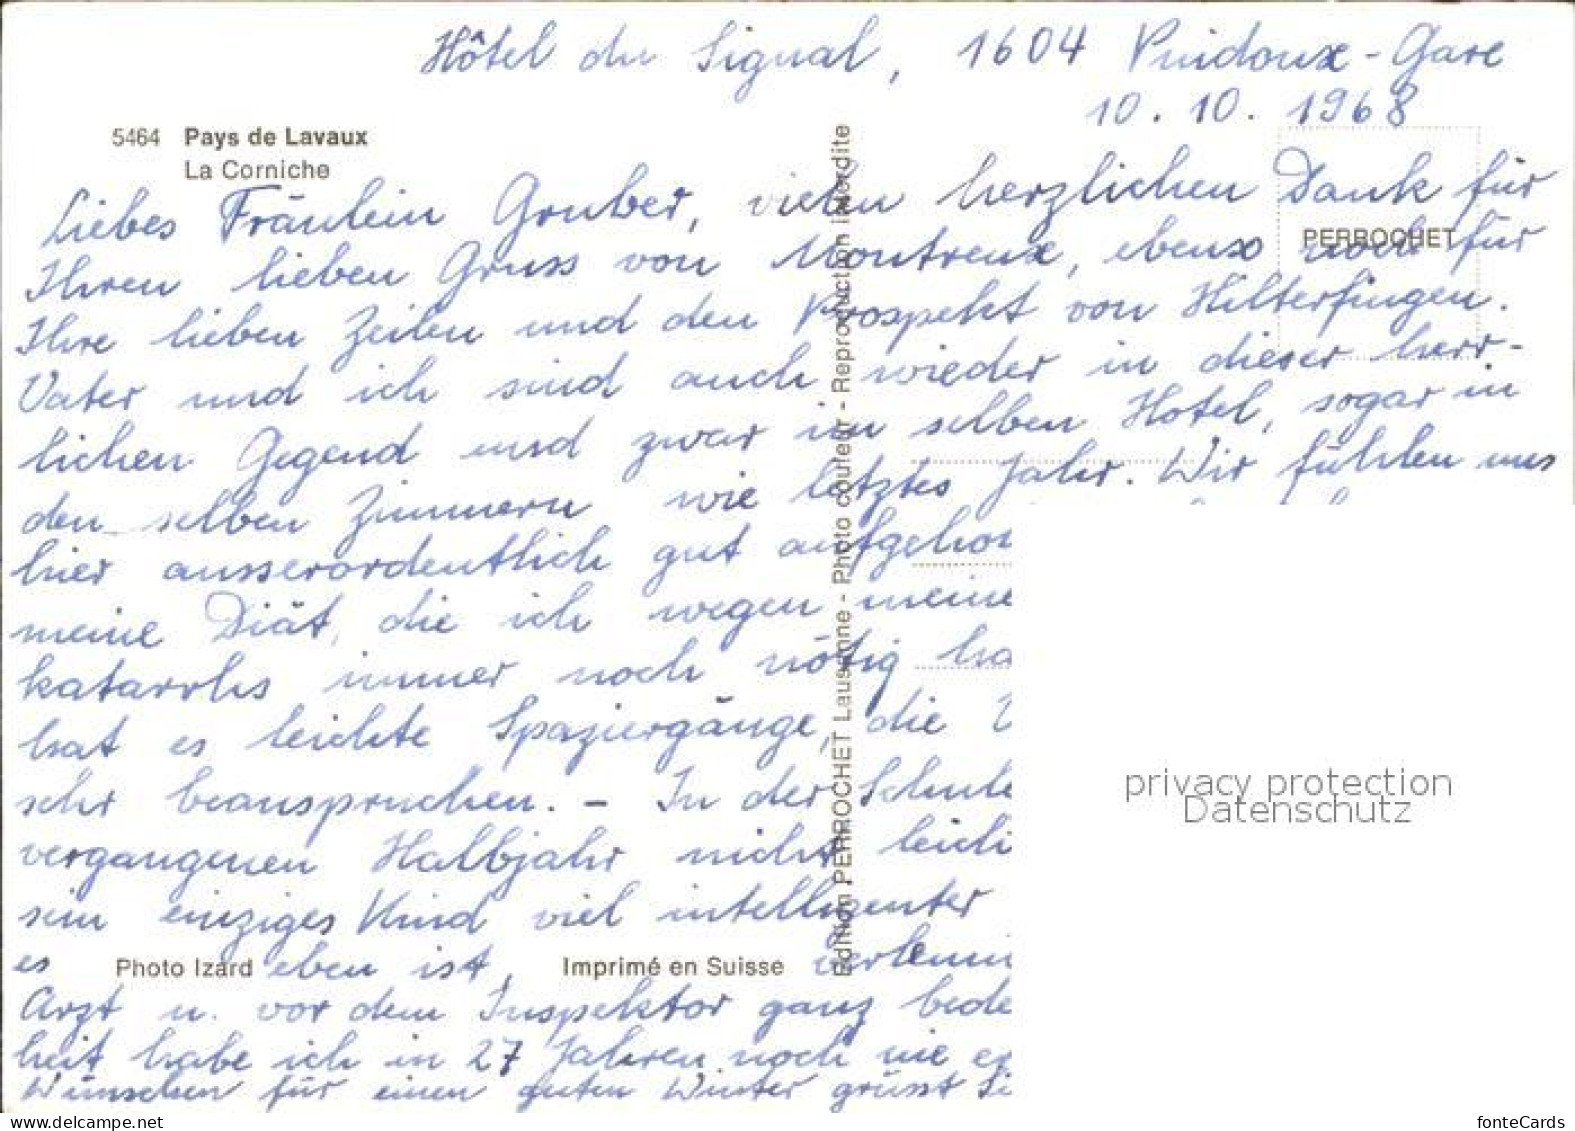 Hôtel du Signal, 1604 Puidoux-Gare
10. 10. 1968
5464 Pays de Lavaux
La Corniche
Liebes Fräulein Gruber, vielen herzlichen Dank für
Ihren lieben Gruss von Montreux, ebenso noch für
Ihre lieben Zeilen und den Prospekt von Hilterfingen.
Vater und ich sind auch wieder in dieser herr-
lichen Gegend und zwar im selben Hotel, sogar in
den selben Zimmern wie letztes Jahr. Wir fühlen uns
hier ausserordentlich gut aufgeho
meine Diät, die ich wegen meine
katarrhs immer noch nötig ha
hat es leichte Spaziergänge, die
sehr beanspruchen. – In der Schule
vergangenen Halbjahr nicht leich
sein einziges Kind viel intelligenter
es eben ist, verleum
Arzt u. vor dem Inspektor ganz bede
heit habe ich in 27 Jahren noch nie e
Wünschen für einen guten Winter grüsst Si
Photo Izard
Imprimé en Suisse
Edition PERROCHET Lausanne - Photo couleur - Reproduction interdite
PERROCHET
privacy protection
Datenschutz
www.delcampe.net
fonteCards